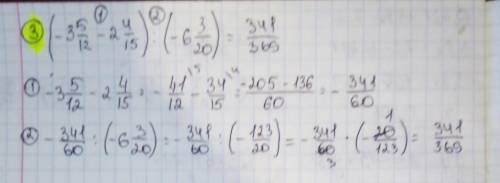 ③ (-3 5/12 ① - 2 4/15) ② : (-6 3/20) = 341/369
① -3 5/12 - 2 4/15 = -41/12 \5 - 34/15 \4 = -205 - 136/60 = - 341/60
② - 341/60 : (-6 3/20) = - 341/60 : (-123/20) = - 341/60 3 · (- 20/123 1) = 341/369